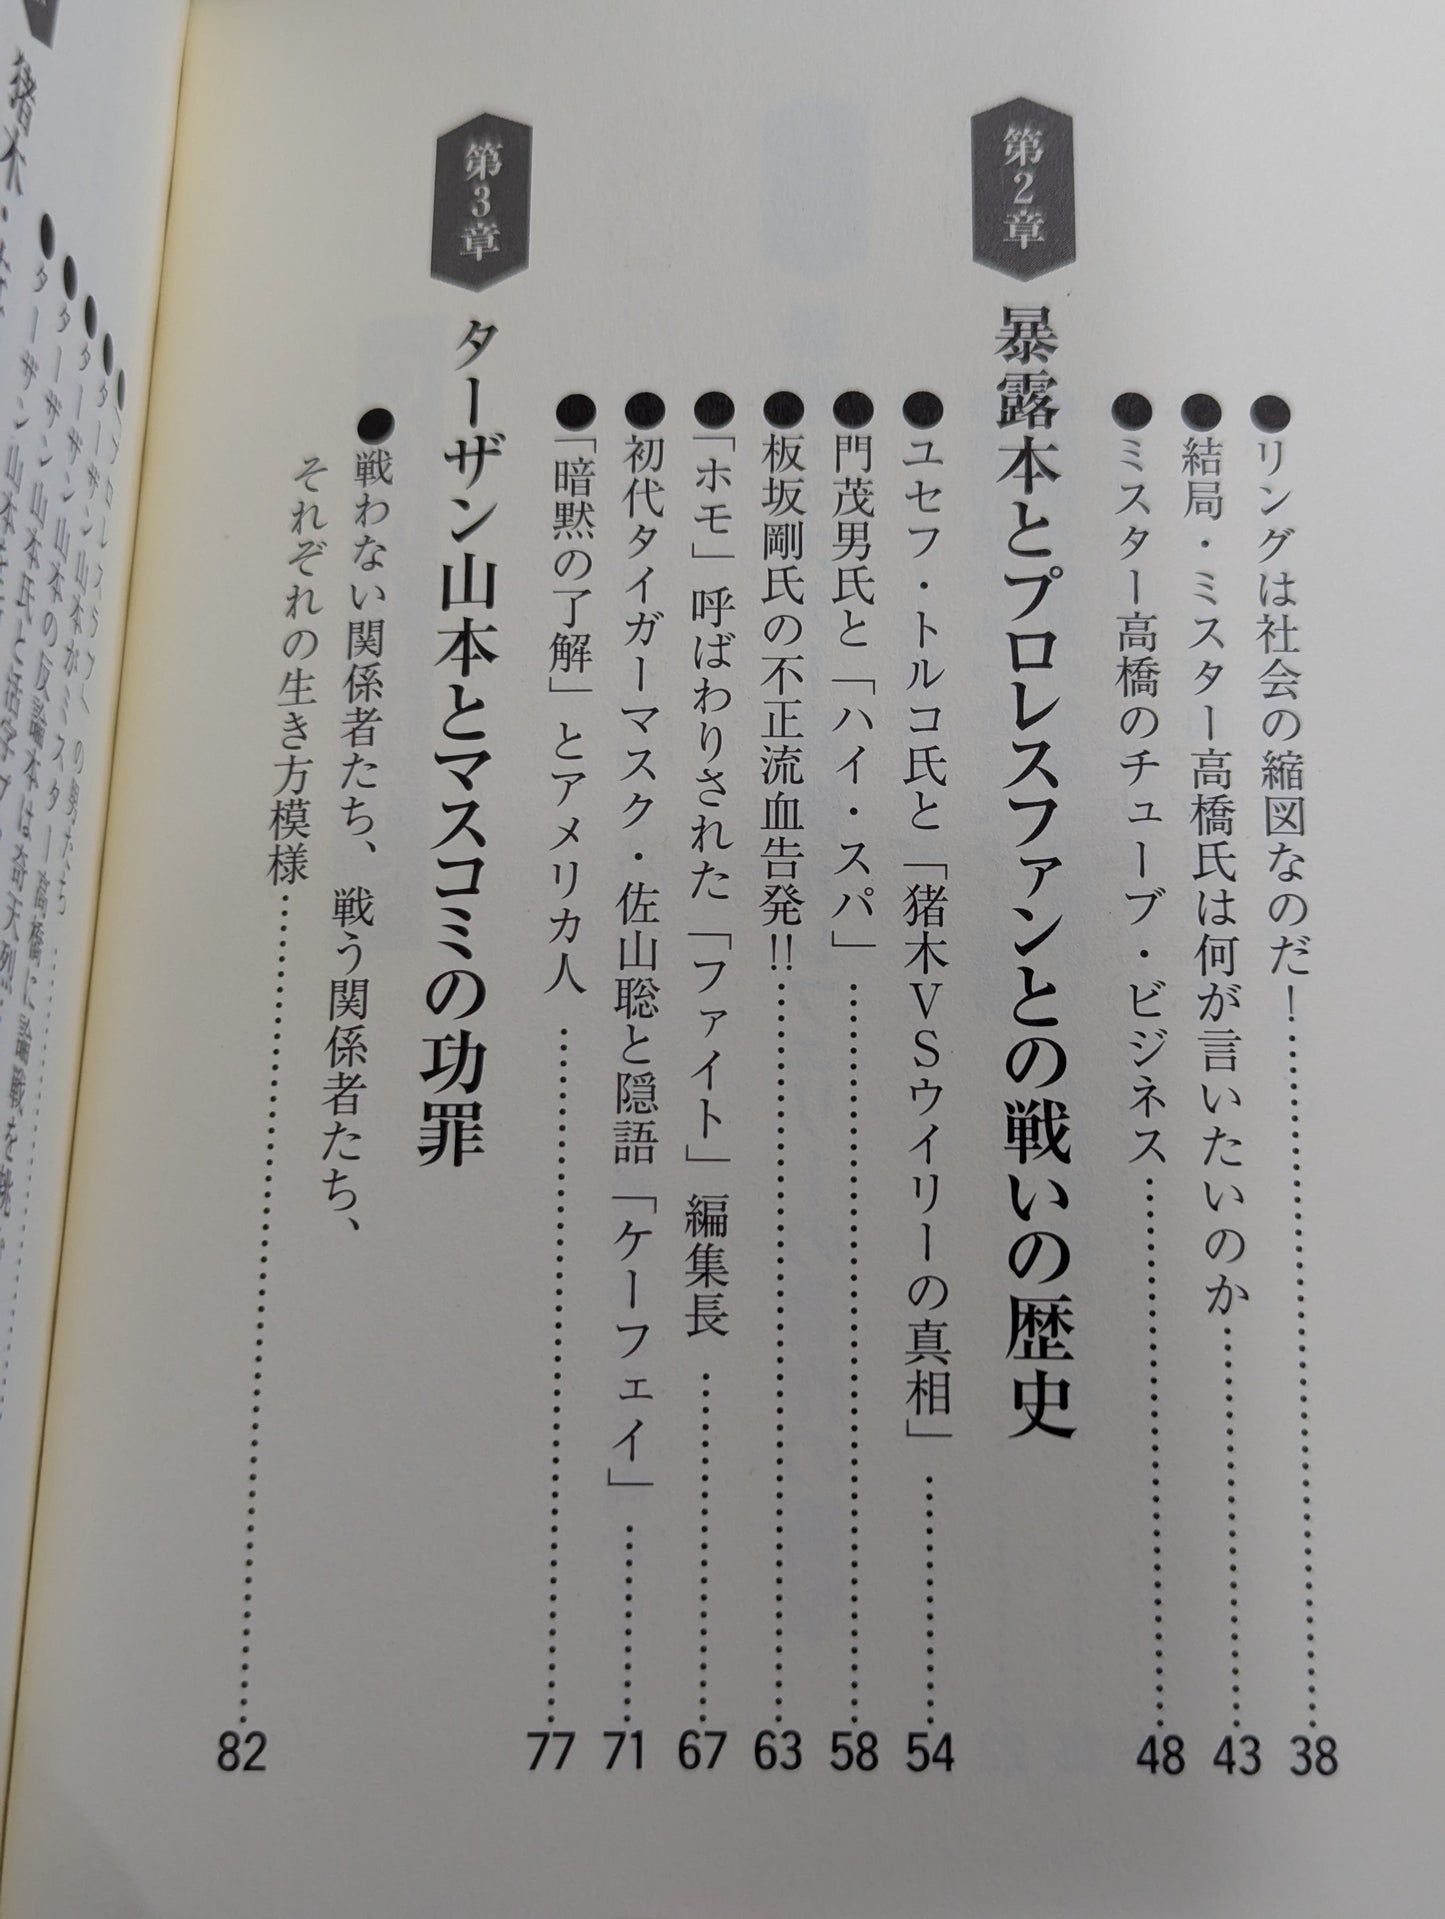 ●リングは社会の縮図なのだ！……38
●結局・ミスター高橋氏は何が言いたいのか……43
●ミスター高橋のチューブ・ビジネス……48
第2章 暴露本とプロレスファンとの戦いの歴史
●ユセフ・トルコ氏と「猪木VSウイリーの真相」……54
●門茂男氏と「ハイ・スパ」……58
●板坂剛氏の不正流血告発!!……63
●「ホモ」呼ばわりされた「ファイト」編集長……67
●初代タイガーマスク・佐山聡と隠語「ケーフェイ」……71
●「暗黙の了解」とアメリカ人……77
第3章 ターザン山本とマスコミの功罪
●戦わない関係者たち、戦う関係者たち、
それぞれの生き方模様……82
●ターザン山本がミスター高橋に論戦を挑
●ターザン山本の反論本は奇天烈
●ターザン山本氏と活字プ
猪木・